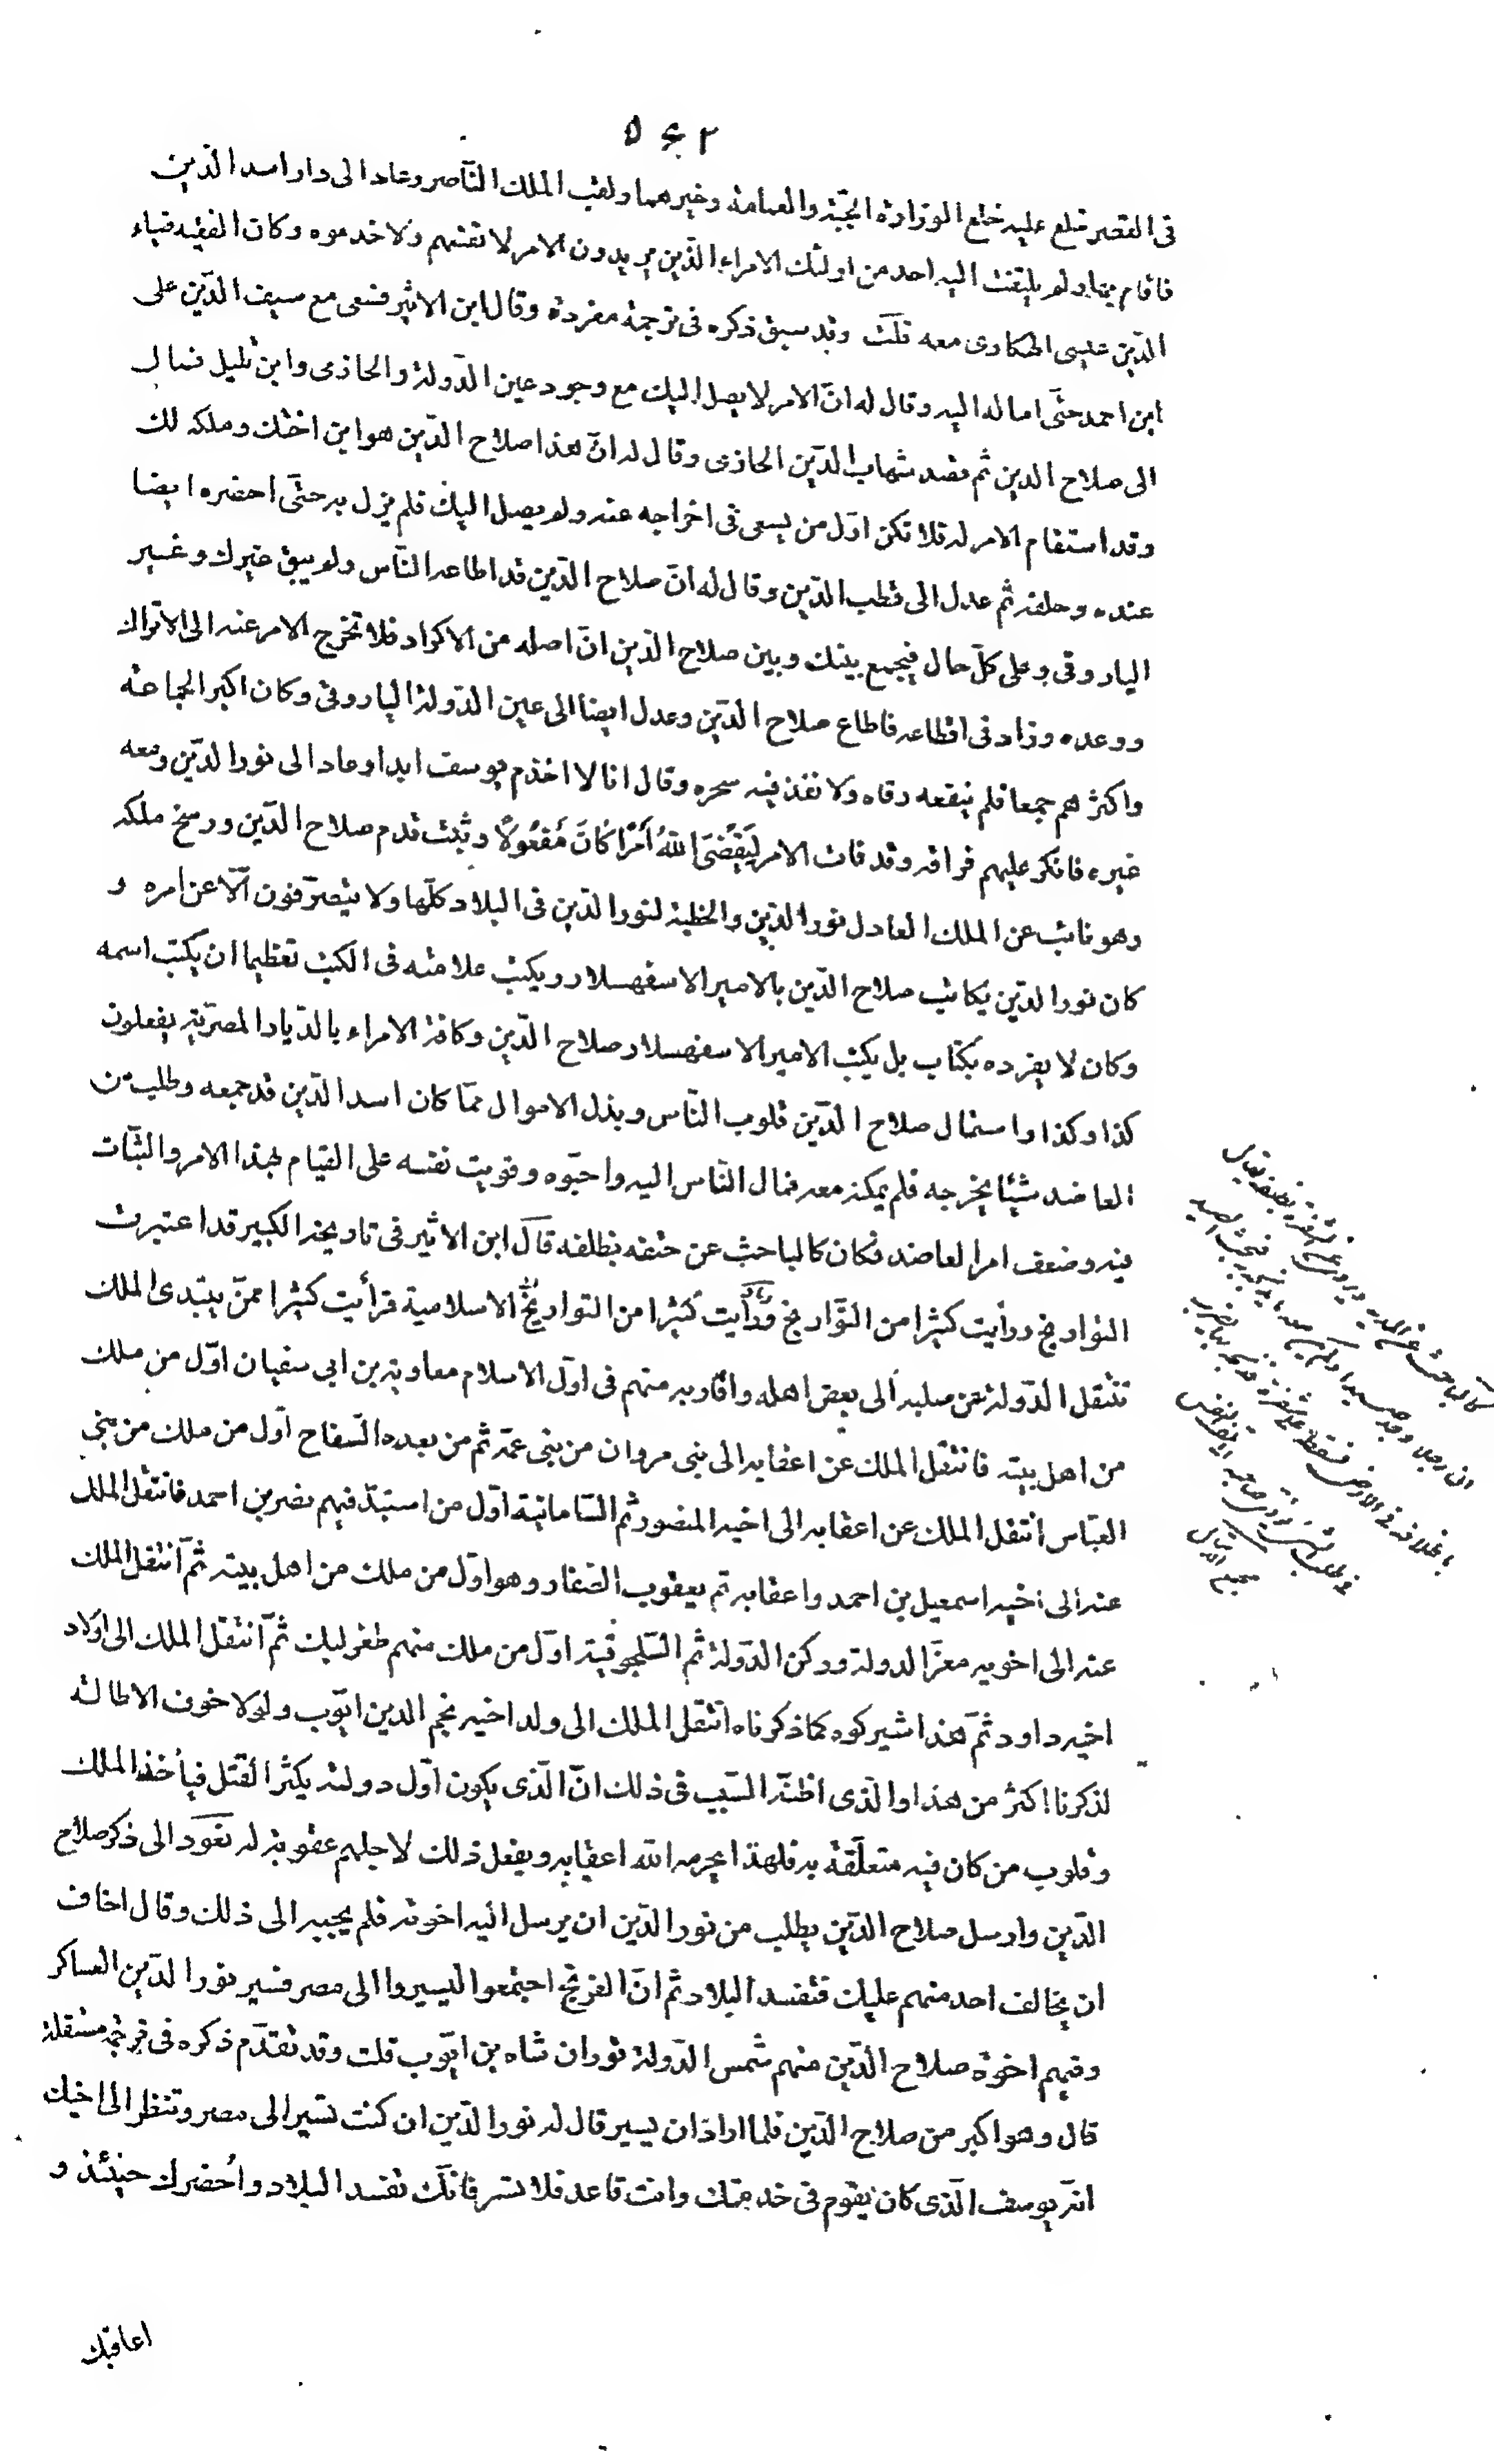 ٥٤٢
فى القصر فخلع عليه خلع الوزارة الجبّة والعمامة وغيرهما ولقب الملك النّاصر وعاد الى دار اسد الدّين
فاقام بها ولم يلتفت اليه احد من اولئك الامراء الّذين يريدون الامر لانفسهم ولا خدموه وكان الفقيه ضياء
الدّين عيسى الهكارى معه قلت وقد سبق ذكره فى ترجمة مفردة وقال ابن الاثير فسعى مع سيف الدّين على
ابن احمد حتّى اماله اليه وقال له انّ الامر لا يصل اليك مع وجود عين الدّولة والحازمى وابن تليل فمال
الى صلاح الدين ثم قصد شهاب الدّين الحازمى وقال له انّ هذا صلاح الدّين هو ابن اختك وملكه لك
وقد استقام الامر له فلا تكن اوّل من يسعى فى اخراجه عنه ولم يصل اليك فلم يزل به حتّى احضره ايضا
عنده وحلفه ثم عدل الى قطب الدّين وقال له انّ صلاح الدّين قد اطاعه النّاس ولم يبق غيرك وغير
الياروقى وعلى كلّ حال فيجمع بينك وبين صلاح الدّين انّ اصله من الاكراد فلا تخرج الامر عنه الى الاتراك
ووعده وزاد فى اقطاعه فاطاع صلاح الدّين وعدل ايضا الى عين الدّولة الياروقى وكان اكبر الجماعة
واكثرهم جمعا فلم ينفعه رقاه ولا نفذ فيه سحره وقال انا لا اخدم يوسف ابدا وعاد الى نور الدّين ومعه
غيره فانكر عليهم فراقه وقد فات الامر لِيَقْضِىَ اللّٰهُ أَمْرًا كَانَ مَفْعُولًا وثبت قدم صلاح الدّين ورسخ ملكه
وهو نائب عن الملك العادل نور الدّين والخطبة لنور الدّين فى البلاد كلّها ولا يتصرّفون الّا عن امره و
كان نور الدّين يكاتب صلاح الدّين بالامير الاسفهسلار ويكتب علامته فى الكتب تعظيما ان يكتب اسمه
وكان لا يفرده بكتاب بل يكتب الامير الاسفهسلار صلاح الدّين وكافة الامراء بالدّيار المصريّة يفعلون
كذا وكذا واستمال صلاح الدّين قلوب النّاس وبذل الاموال ممّا كان اسد الدّين قد جمعه وطلب من
العاضد شيئا يخرجه فلم يمكنه منعه فمال النّاس اليه واحبّوه وقويت نفسه على القيام بهذا الامر والثّبات
فيه وضعف امر العاضد فكان كالباحث عن حتفه بظلفه قال ابن الاثير فى تاريخه الكبير قد اعتبرت
التواريخ ورأيت كثيرا من التّواريخ ورأيت كثيرا من التواريخ الاسلامية فرأيت كثيرا ممّن يبتدى الملك
تنتقل الدّولة عن صلبه الى بعض اهله واقاربه منهم فى اوّل الاسلام معاوية بن ابى سفيان اوّل من ملك
من اهل بيته فانتقل الملك عن اعقابه الى بنى مروان من بنى عمّه ثم من بعده السّفاح اوّل من ملك من بنى
العبّاس انتقل الملك عن اعقابه الى اخيه المنصور ثم السّامانية اوّل من استبدّ فيهم نصر بن احمد فانتقل الملك
عنه الى اخيه اسمعيل بن احمد واعقابه ثم يعقوب الصّفار وهو اوّل من ملك من اهل بيته ثمّ انتقل الملك
عنه الى اخويه معزّ الدولة وركن الدّولة ثم السّلجوقية اوّل من ملك منهم طغرلبك ثمّ انتقل الملك الى اولاد
اخيه داود ثمّ هذا شيركوه كما ذكرناه انتقل الملك الى ولد اخيه نجم الدين ايّوب ولولا خوف الاطالة
لذكرنا اكثر من هذا والّذى اظنّه السّبب فى ذلك انّ الّذى يكون اوّل دولته يكثر القتل فيأخذ الملك
وقلوب من كان فيه متعلّقة به فلهذا يحرمه اللّه اعقابه ويفعل ذلك لاجلهم عقوبة له نعود الى ذكر صلاح
الدّين وارسل صلاح الدّين يطلب من نور الدّين ان يرسل اليه اخوته فلم يجيبه الى ذلك وقال اخاف
ان يخالف احد منهم عليك فتفسد البلاد ثم انّ الفرنج اجتمعوا ليسيروا الى مصر فسير نور الدّين العساكر
وفيهم اخوة صلاح الدّين منهم شمس الدّولة توران شاه بن ايّوب قلت وقد تقدّم ذكره فى ترجمة مستقلة
قال وهو اكبر من صلاح الدّين فلما اراد ان يسير قال له نور الدّين ان كنت تسير الى مصر وتنظر الى اخيك
انّه يوسف الّذى كان يقوم فى خدمتك وانت قاعد فلا تسر فانّك تفسد البلاد واُحضرك حينئذ و
اعاقبك